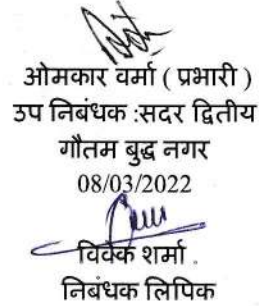 ओमकार वर्मा ( प्रभारी )
उप निबंधक :सदर द्वितीय
गौतम बुद्ध नगर
08/03/2022
विवेक शर्मा .
निबंधक लिपिक